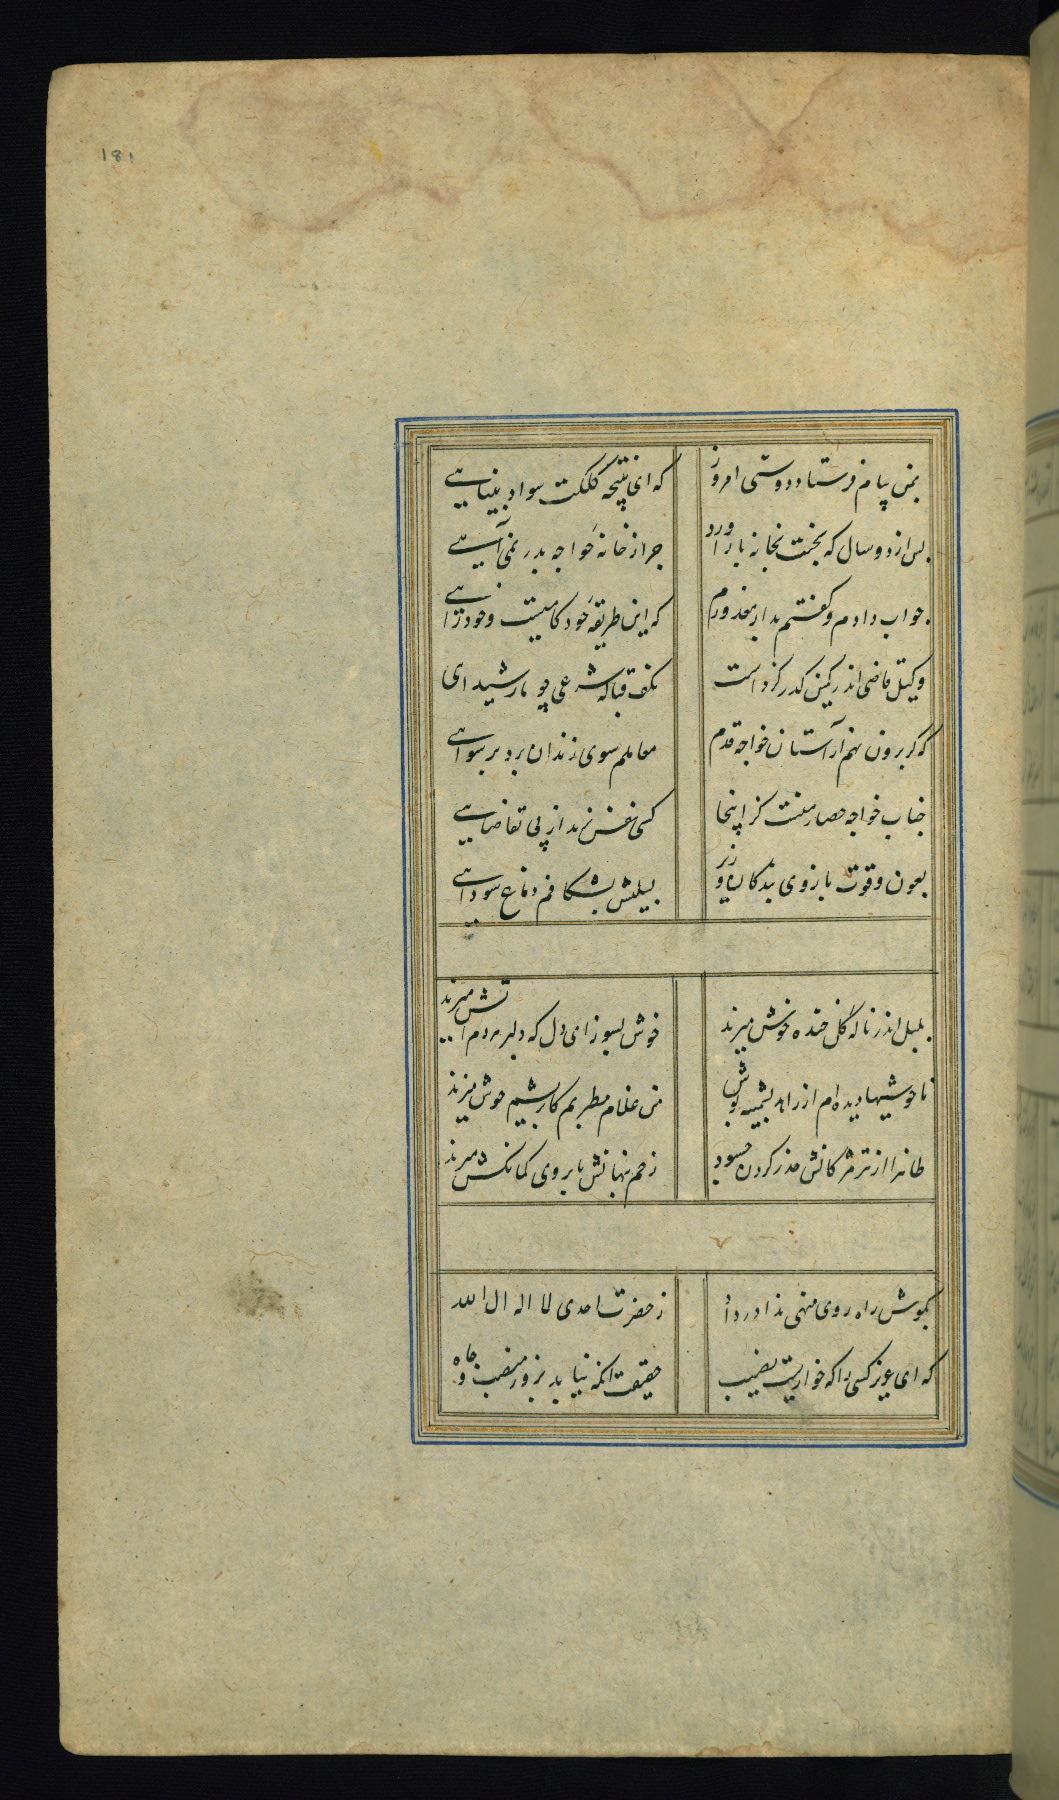 181
بمن پیام فرستاد دوستی امروز که ای نتیجه کلکت سواد بینایی
پس از دو سال که بختت بخانه باز آورد چرا ز خانه خواجه بدر نمی آیی
جواب دادم و گفتم بدار معذورم که این طریقه خود کامیست و خودرایی
وکیل قاضی اندر کمین کذر کرد است بکف قباله شرعی چو مار شیدای
که کر برون نهم از آستان خواجه قدم معاملم سوی زندان برد برسوایی
جناب خواجه حصار منست کر اینجا کسی نفس زند از پی تقاضایی
بعون وقوت بازوی بندکان وزیر بسیلیش بشکافم دماغ سودایی
بلبل اندر ناله گل خنده خوش میزند خوش بسوز ای دل که دلبر در دم آتش میزند
ناخوشیها دیده ام از زاهد پشمینه پوش من غلام مطربم کابریشم خوش میزند
از تیر مژکانش حذر کردن چسود زخم پنهانش بابروی کمانکش میزند
بکوش راه روی منهی ندا در داد ز حضرت احدی لا اله الا الله
که ای عزیز کسی را که خواریست نصیب حقیقت انکه نیابد بزور منصب و جاه